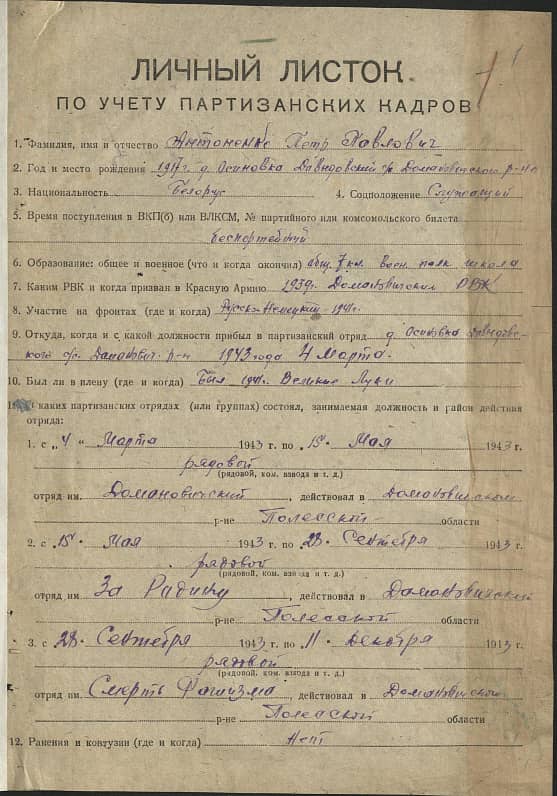 ЛИЧНЫЙ ЛИСТОК
ПО УЧЕТУ ПАРТИЗАНСКИХ КАДРОВ
1. Фамилия, имя и отчество Антоненко Петр Павлович
2. Год и место рождения 1917г. д. Осиновка Давыдовский с/с Домановичского р-на
3. Национальность Белорус 4. Соцположение Служащий
5. Время поступления в ВКП(б) или ВЛКСМ, № партийного или комсомольского билета
беспартейный
6. Образование: общее и военное (что и когда окончил) общ. 7 кл. воен. полк. школа
7. Каким РВК и когда призван в Красную Армию 1939г. Домановичским РВК
8. Участие на фронтах (где и когда) Русско-Немецкий-1941г.
9. Откуда, когда и с какой должности прибыл в партизанский отряд д. Осиновка Давыдов-
ского с/с. Доманович. р-н 1943 года 4 Марта.
10. Был ли в плену (где и когда) Был 1941г. Великие Луки
каких партизанских отрядах (или группах) состоял, занимаемая должность и район действия
отряда:
1. с „4“ Марта 1943 г. по 15. Мая 1943 г.
рядовой
(рядовой, ком. взвода и т. д.)
отряд им. Домановичский, действовал в Домановичском
р-не Полесской области
2. с 15. Мая 1943 г. по 23. Сентября 1943 г.
рядовой
(рядовой, ком. взвода и т. д.)
отряд им За Родину, действовал в Домановичский
р-не Полесской области
3. с 23. Сентября 1943 г. по 11. Декабря 1943 г.
рядовой
(рядовой, ком. взвода и т. д.)
отряд им. Смерть Фашизма, действовал в Домановичской
р-не Полесской области
12. Ранения и контузии (где и когда) Нет